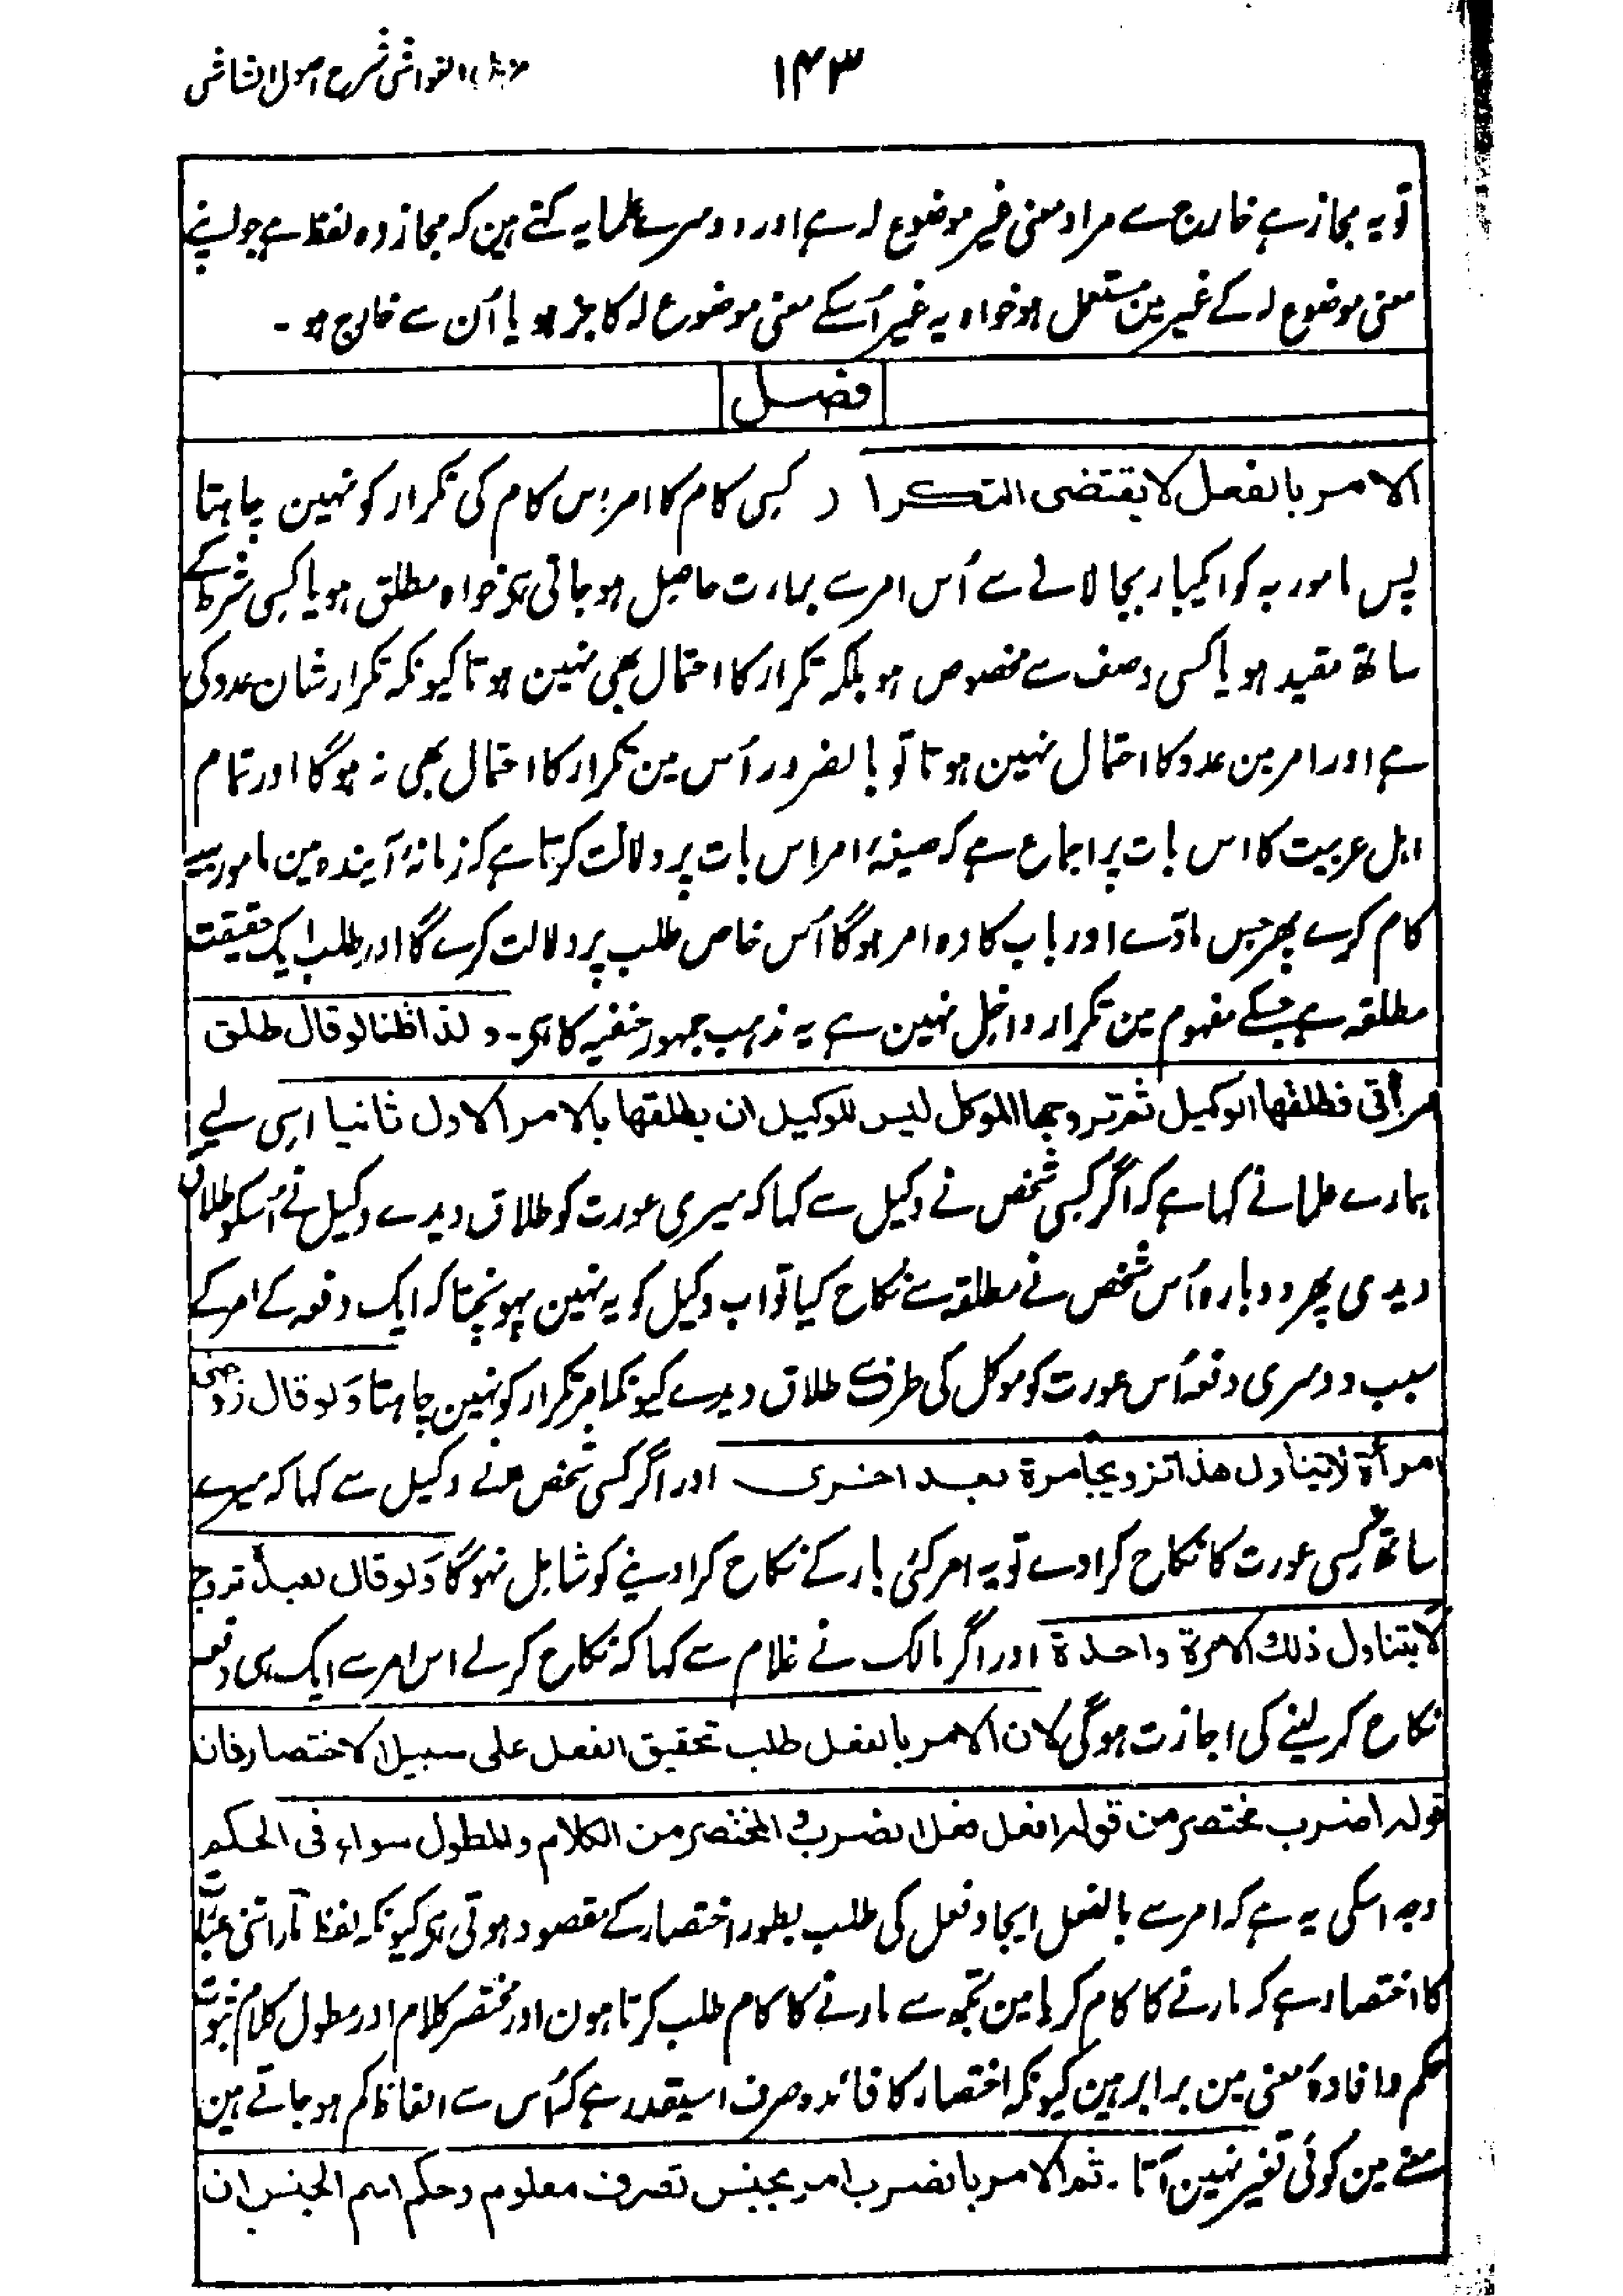 ۱۴۳
شرح اصول الشاشی
تو یہ مجاز ہے خارج سے مراد معنی غیر موضوع لہ ہے اور دوسرے علما یہ کہتے ہین کہ مجاز وہ لفظ ہے جو اپنے
معنی موضوع لہ کے غیر مین مستعمل ہو خواہ یہ غیر اُسکے معنی موضوع لہ کا جز ہو یا اُن سے خارج ہو ۔
فصل
الامر بالفعل لا یقتضی التکرار کسی کام کا امر اس کام کی تکرار کو نہین چاہتا
پس مامور بہ کو ایکبار بجا لانے سے اُس امر سے براءت حاصل ہو جاتی ہی خواہ مطلق ہو یا کسی شرط کے
ساتھ مقید ہو یا کسی وصف سے مخصوص ہو بلکہ تکرار کا احتمال بھی نہین ہوتا کیونکہ تکرار شان عدد کی
ہے اور امر مین عدد کا احتمال نہین ہوتا تو بالضرور اُس مین تکرار کا احتمال بھی نہ ہوگا اور تمام
اہل عربیت کا اس بات پر اجماع ہے کہ صیغۂ امر اس بات پر دلالت کرتا ہے کہ زمانۂ آیندہ مین مامور سے
کام کرے پھر جس مادّے اور باب کا وہ امر ہوگا اُس خاص طلب پر دلالت کرے گا اور طلب ایک حقیقت
مطلقہ ہے جسکے مفہوم مین تکرار داخل نہین ہے یہ مذہب جمہور حنفیہ کا ہی ۔ و لذا قلنا لو قال طلق
امرأتی فطلقها الوکیل ثم تزوجها الموکل لیس للوکیل ان یطلقها بالامر الاول ثانیا اسی لیے
ہمارے علما نے کہا ہے کہ اگر کسی شخص نے وکیل سے کہا کہ میری عورت کو طلاق دیدے وکیل نے اُسکو طلاق
دیدی پھر دوبارہ اُس شخص نے مطلقہ سے نکاح کیا تو اب وکیل کو یہ نہین پہونچتا کہ ایک دفعہ کے امر کے
سبب دوسری دفعہ اُس عورت کو موکل کی طرف سے طلاق دیدے کیونکہ امر تکرار کو نہین چاہتا وَلو قال زوجنی
امرأة لا یتناول هذا تزویجا مرة بعد اخری اور اگر کسی شخص نے وکیل سے کہا کہ میرے
ساتھ کسی عورت کا نکاح کرا دے تو یہ امر کئی بار کے نکاح کرا دینے کو شامل نہوگا وَلو قال لعبدہ تزوج
لا یتناول ذلك الا مرة واحدة اور اگر مالک نے غلام سے کہا کہ نکاح کر لے اس امر سے ایک ہی دفعہ
نکاح کر لینے کی اجازت ہوگی لان الامر بالفعل طلب تحقیق الفعل علی سبیل الاختصار فان
قوله اضرب مختصر من قوله افعل فعل الضرب والمختصر من الکلام والمطول سواء فی الحکم
وجہ اسکی یہ ہے کہ امر سے بالفعل ایجاد فعل کی طلب بطور اختصار کے مقصود ہوتی ہی کیونکہ لفظ مار اتنی عبارت
کا اختصار ہے کہ مارنے کا کام کر یا مین تجھ سے مارنے کا کام طلب کرتا ہون اور مختصر کلام اور مطول کلام ثبوت
حکم و افادۂ معنی مین برابر ہین کیونکہ اختصار کا فائدہ صرف اسیقدر ہے کہ اُس سے الفاظ کم ہو جاتے ہین
معنے مین کوئی تغیر نہین آتا ۔ ثم الامر بالضرب امر بجنس تصرف معلوم وحکم اسم الجنس ان